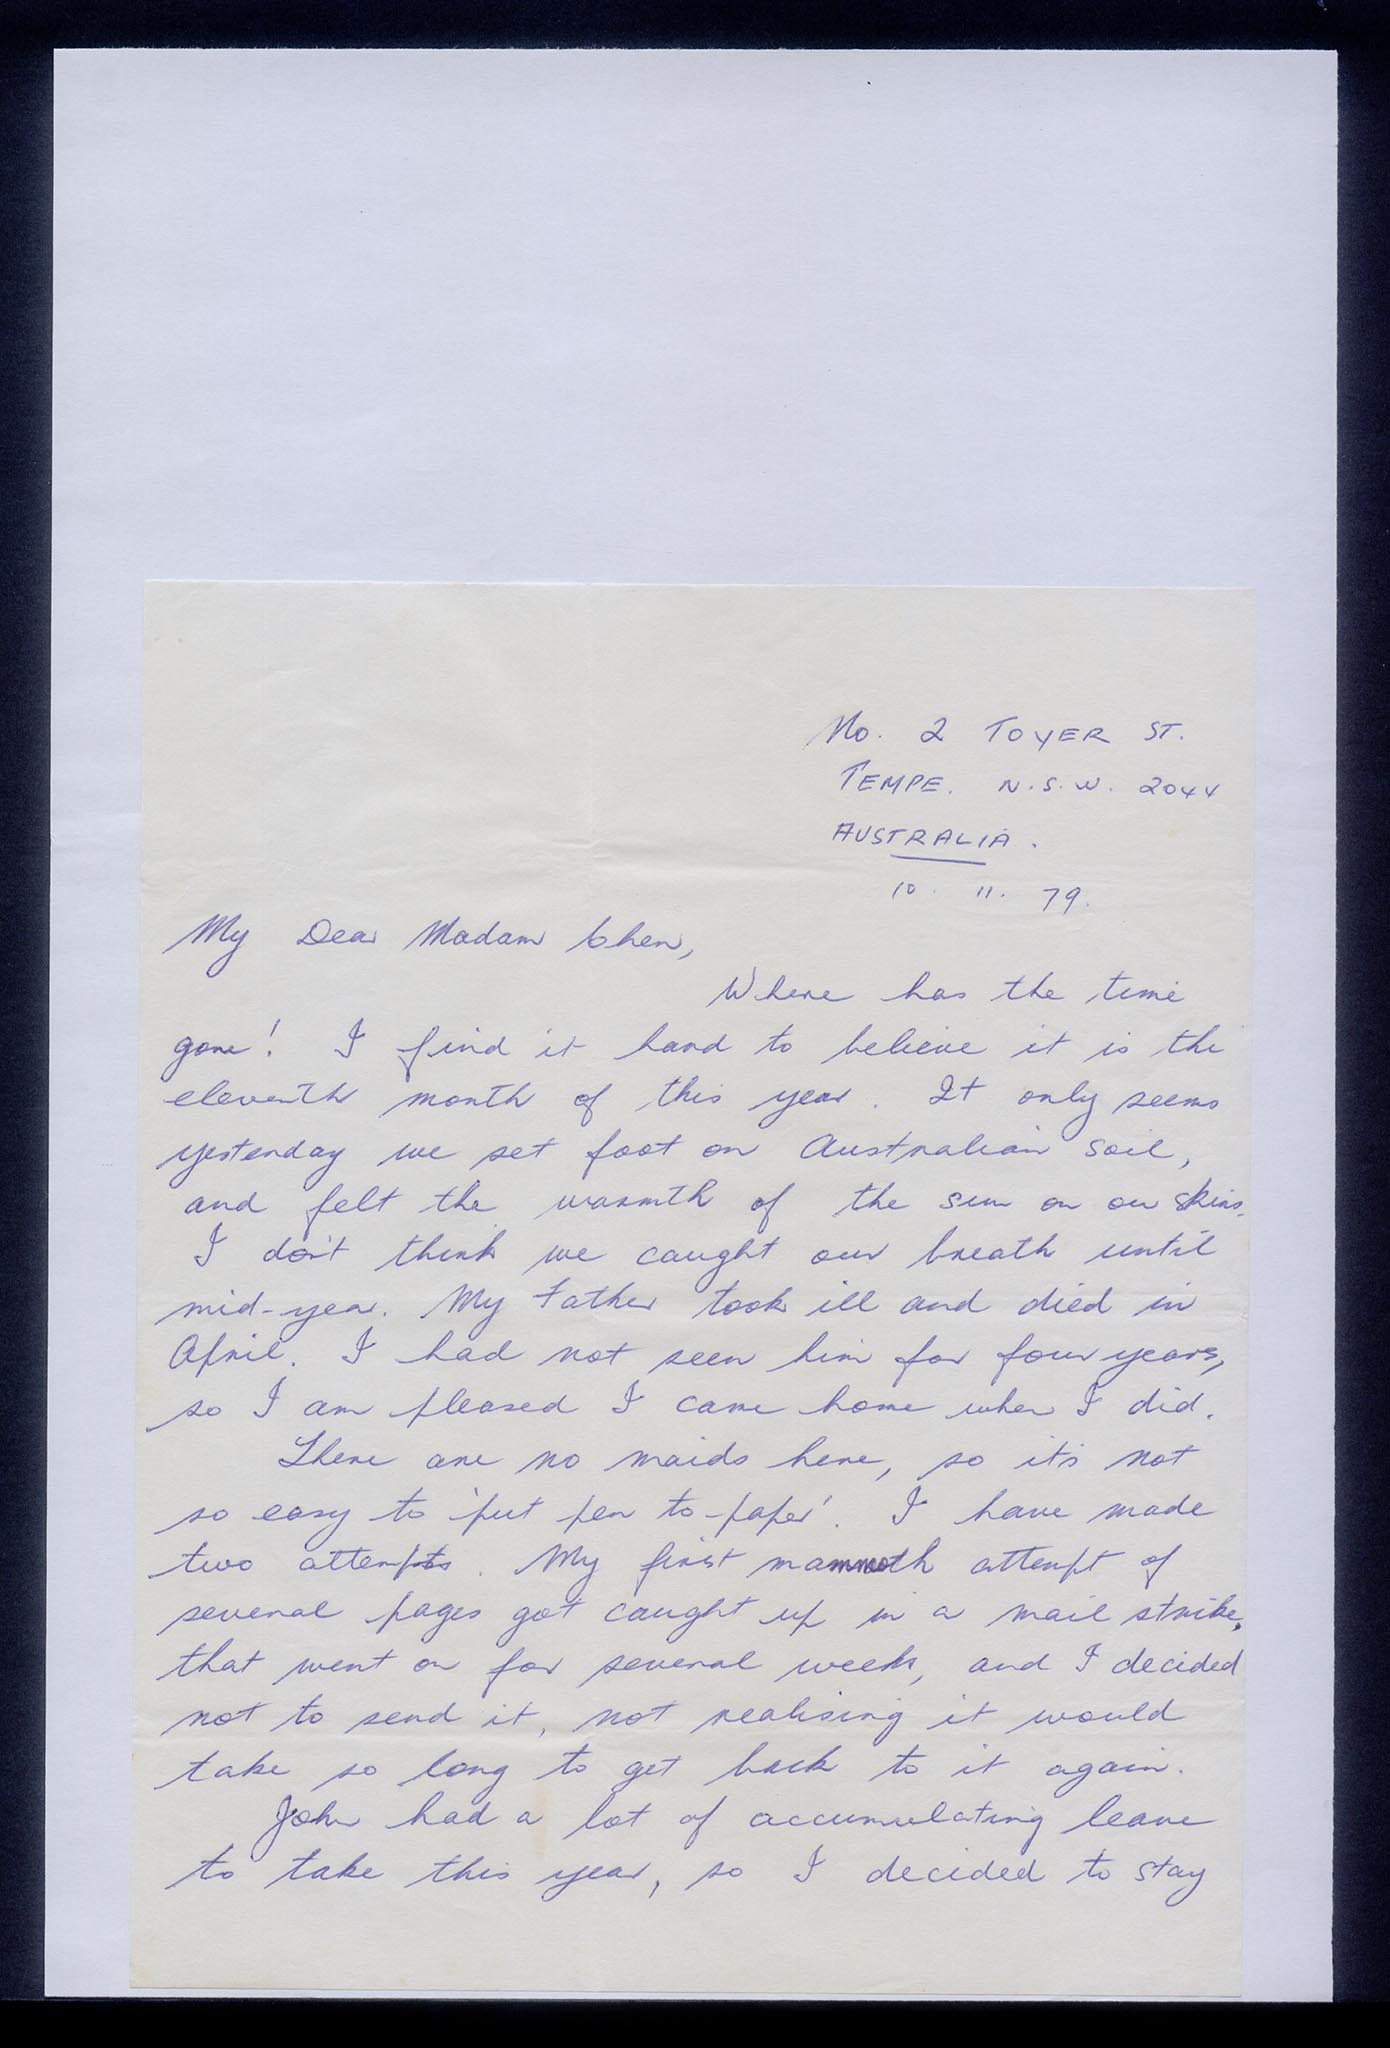 No. 2 TOYER ST.
TEMPE. N.S.W. 2044
AUSTRALIA.
10. 11. 79.
My Dear Madam Chen,
Where has the time
gone! I find it hard to believe it is the
eleventh month of this year. It only seems
yesterday we set foot on Australian soil,
and felt the warmth of the sun on our skins.
I don't think we caught our breath until
mid-year. My Father took ill and died in
April. I had not seen him for four years,
so I am pleased I came home when I did.
There are no maids here, so it's not
so easy to 'put pen to-paper'. I have made
two attempts. My first mammoth attempt of
several pages got caught up in a mail strike,
that went on for several weeks, and I decided
not to send it, not realising it would
take so long to get back to it again.
John had a lot of accumulating leave
to take this year, so I decided to stay